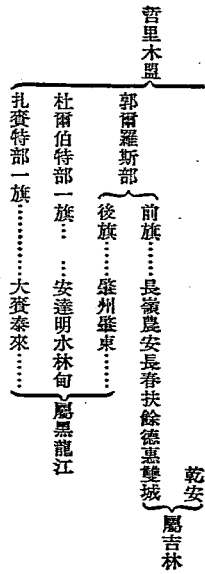 哲里木盟
郭爾羅斯部
前旗……長嶺農安長春扶餘德惠雙城
乾安
屬吉林
後旗……肇州肇東……
杜爾伯特部一旗……安達明水林甸
屬黑龍江
扎賚特部一旗…………大賚泰來……